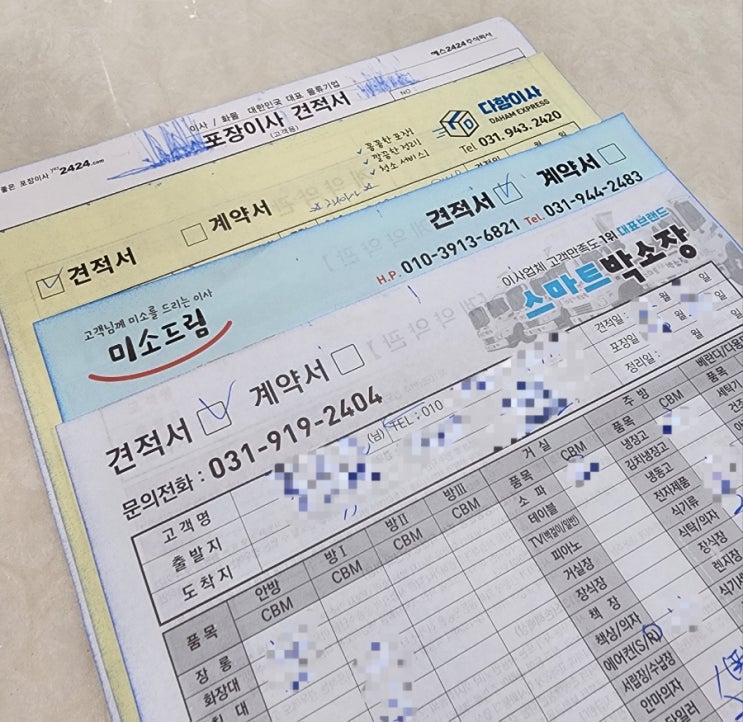 예스2424 주식회사
이사 / 화물 대한민국 대표 물류기업
포장이사 견적서
(고객용)
NO
좋은 포장이사 yes2424.com
다함이사
DAHAM EXPRESS
Tel 031.943.2420
꼼꼼한 포장!
깔끔한 정리
청소 서비스!
견적서 계약서
견적서 계약서
H.P. 010-3913-6821 Tel. 031-944-2483
고객님께 미소를 드리는 이사
미소드림
이사업체 고객만족도 1위 대표브랜드
스마트박소장
견적서 계약서
문의전화 : 031-919-2404
견적일 : 월 일
포장일 : 월 일
정리일 : 월 일
고객명 (님) TEL : 010
출발지
도착지
품목 안방 CBM 방Ⅰ CBM 방Ⅱ CBM 방Ⅲ CBM
거실 주방 베란다/다용
품목 CBM 품목 CBM 품목
장롱
화장대
소파
테이블
TV(벽걸이/일반)
피아노
거실장
장식장
책장
책상/의자
에어컨(S/R)
서랍장/수납장
안마의자
냉장고
김치냉장고
냉동고
전자제품
식기류
식탁/의자
장식장
렌지장
세탁기